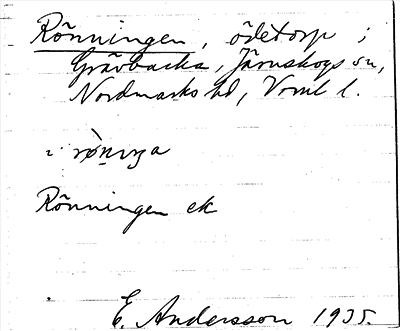 Rönningen, ödetorp i
Grävbacka, Järnskogs sn,
Nordmarks hd, Vrml l.
i rö̀niŋa
Rönningen ek
E. Andersson 1935.